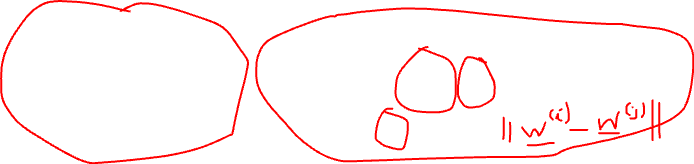 || w^(i) - w^(j) ||